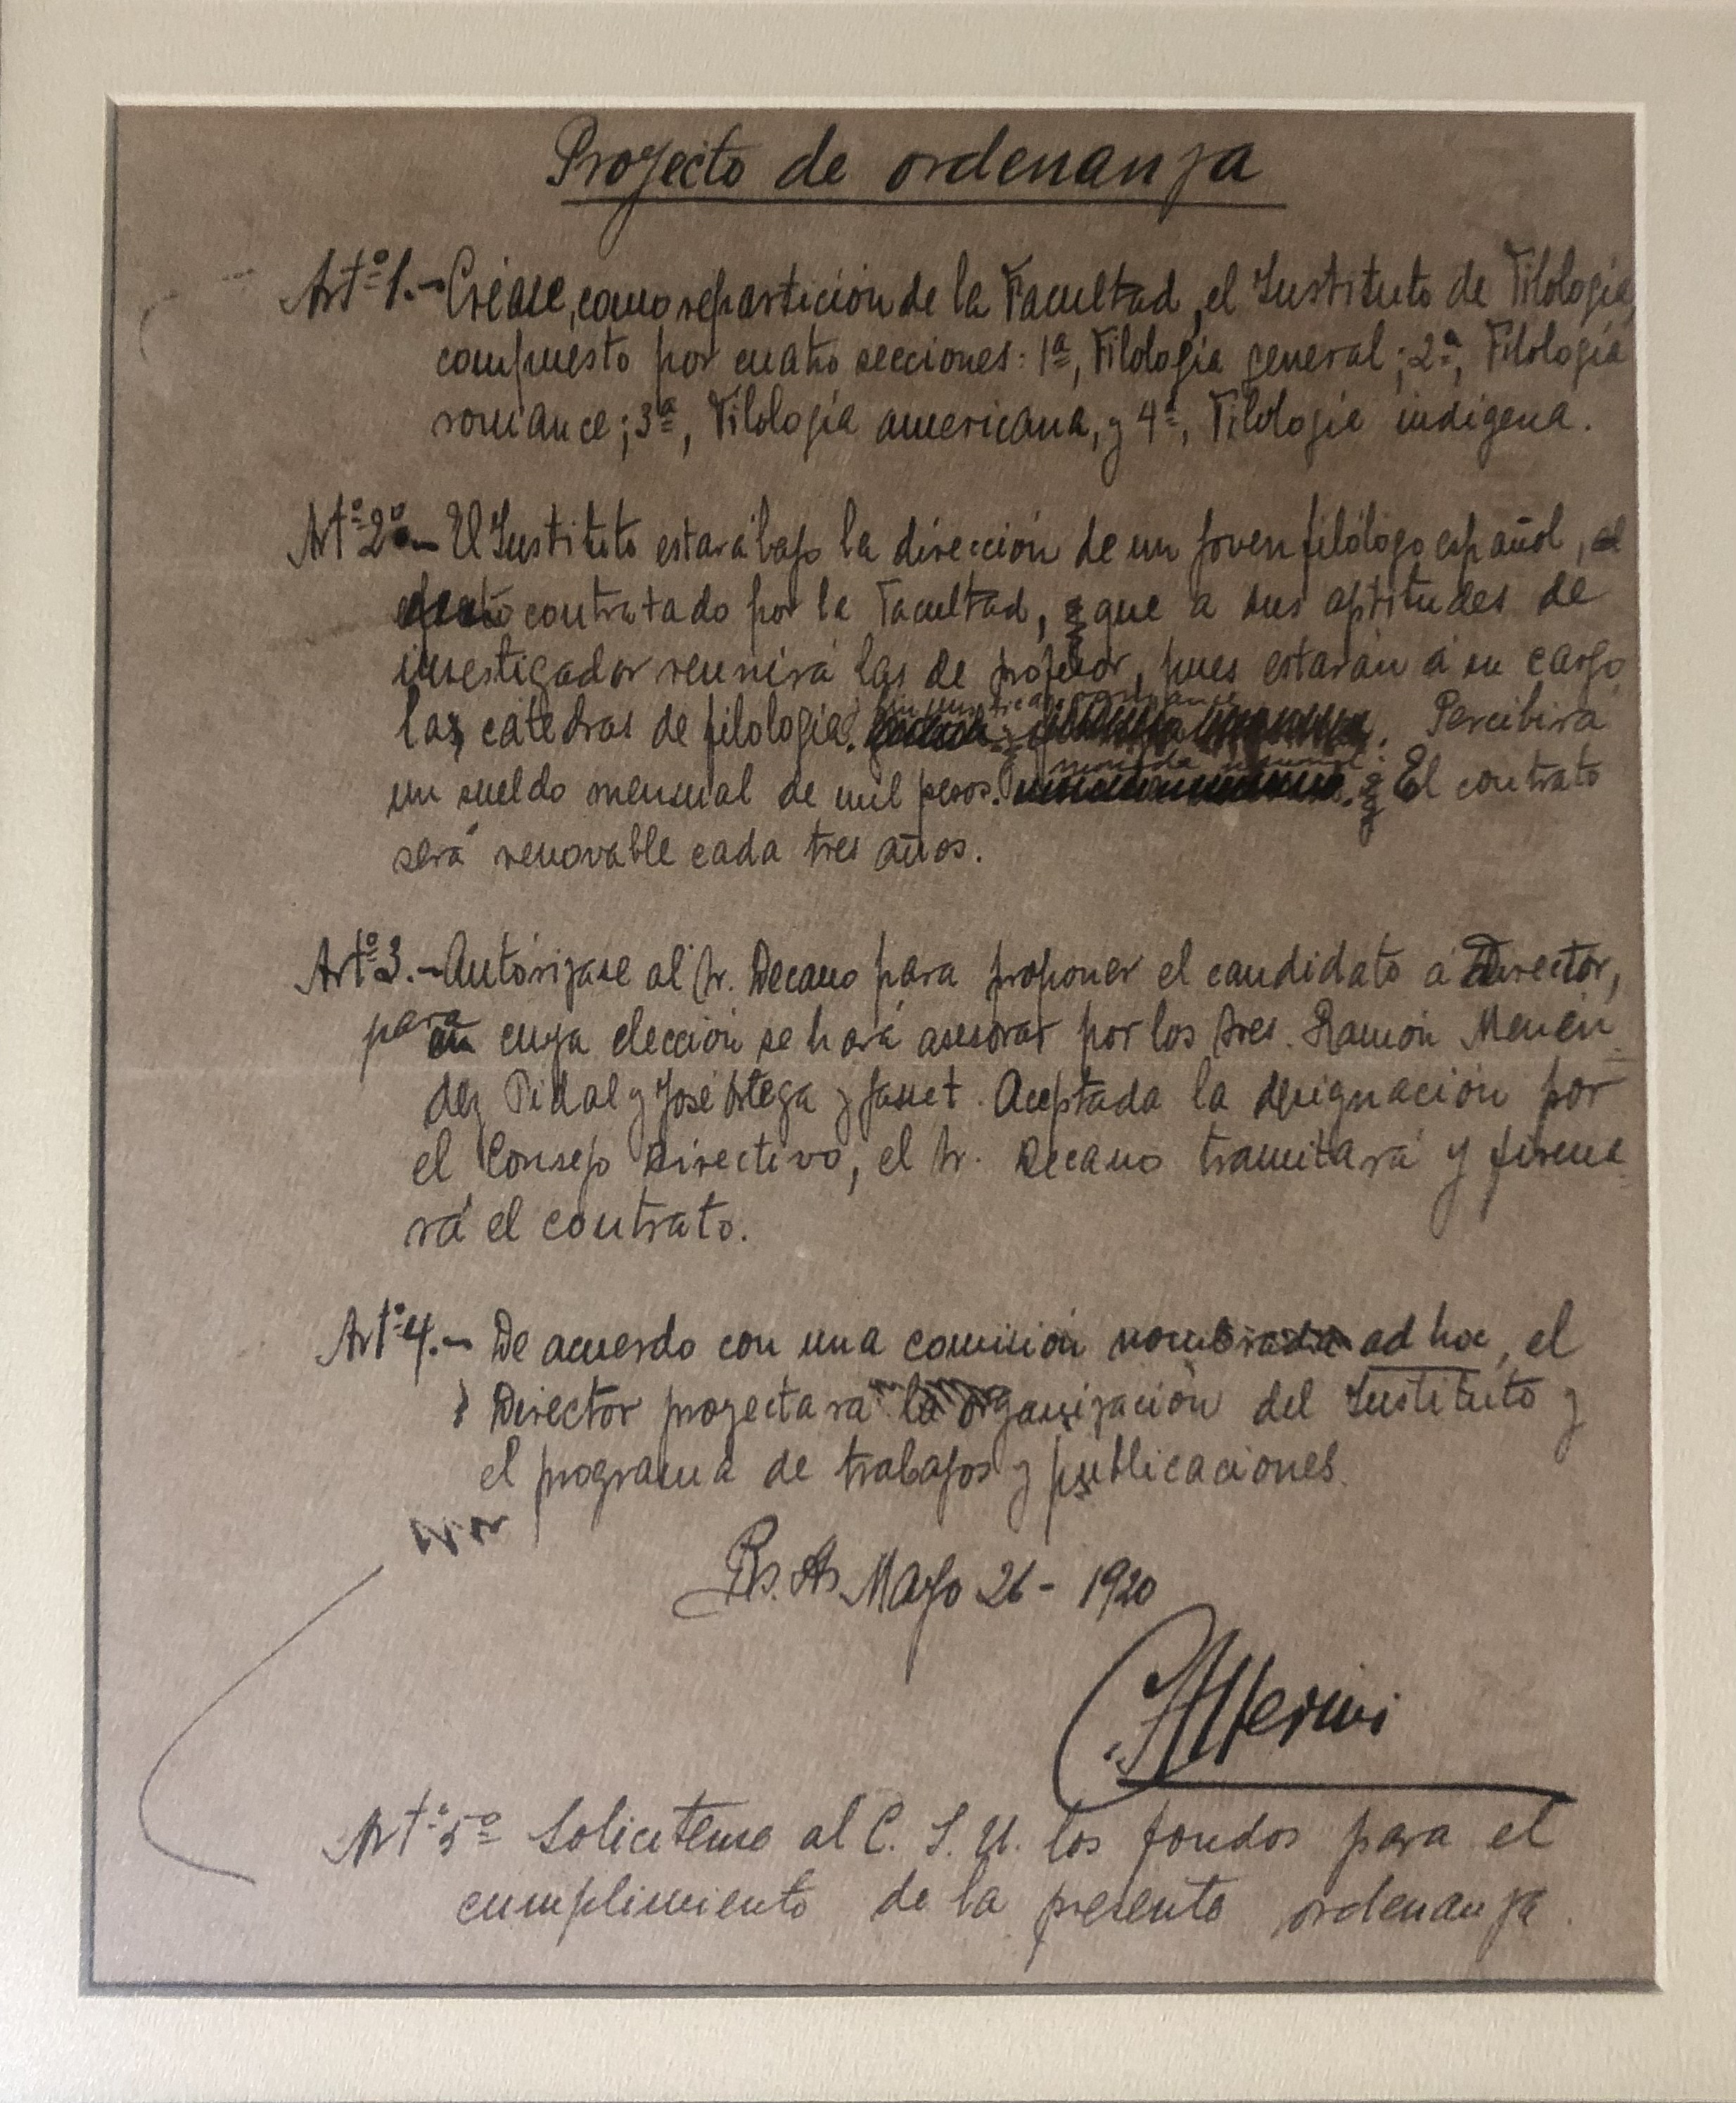 Proyecto de ordenanza
Artº 1.- Créase, como repartición de la Facultad, el Instituto de Filología,
compuesto por cuatro secciones: 1ª, Filología general; 2ª, Filología
romance; 3ª, Filología americana, y 4ª, Filología indígena.
Artº 2º.- El Instituto estará bajo la dirección de un joven filólogo español,
contratado por la Facultad, que a sus aptitudes de
investigador reunirá las de profesor, pues estarán á su cargo
las cátedras de filología. Percibirá
moneda nacional.
un sueldo mensual de mil pesos. El contrato
será renovable cada tres años.
Artº 3.- Autorízase al Sr. Decano para proponer el candidato á Director,
para cuya elección se hará asesorar por los Sres. Ramón Menén-
dez Pidal y José Ortega y Gasset. Aceptada la designación por
el Consejo Directivo, el Sr. Decano tramitará y firma-
rá el contrato.
Artº 4.- De acuerdo con una comisión nombrada ad hoc, el
Director proyectará la organización del Instituto y
el programa de trabajos y publicaciones.
Bs. As. Mayo 26 - 1920
C. Alberini
Artº 5º Solicítense al C. S. U. los fondos para el
cumplimiento de la presente ordenanza.